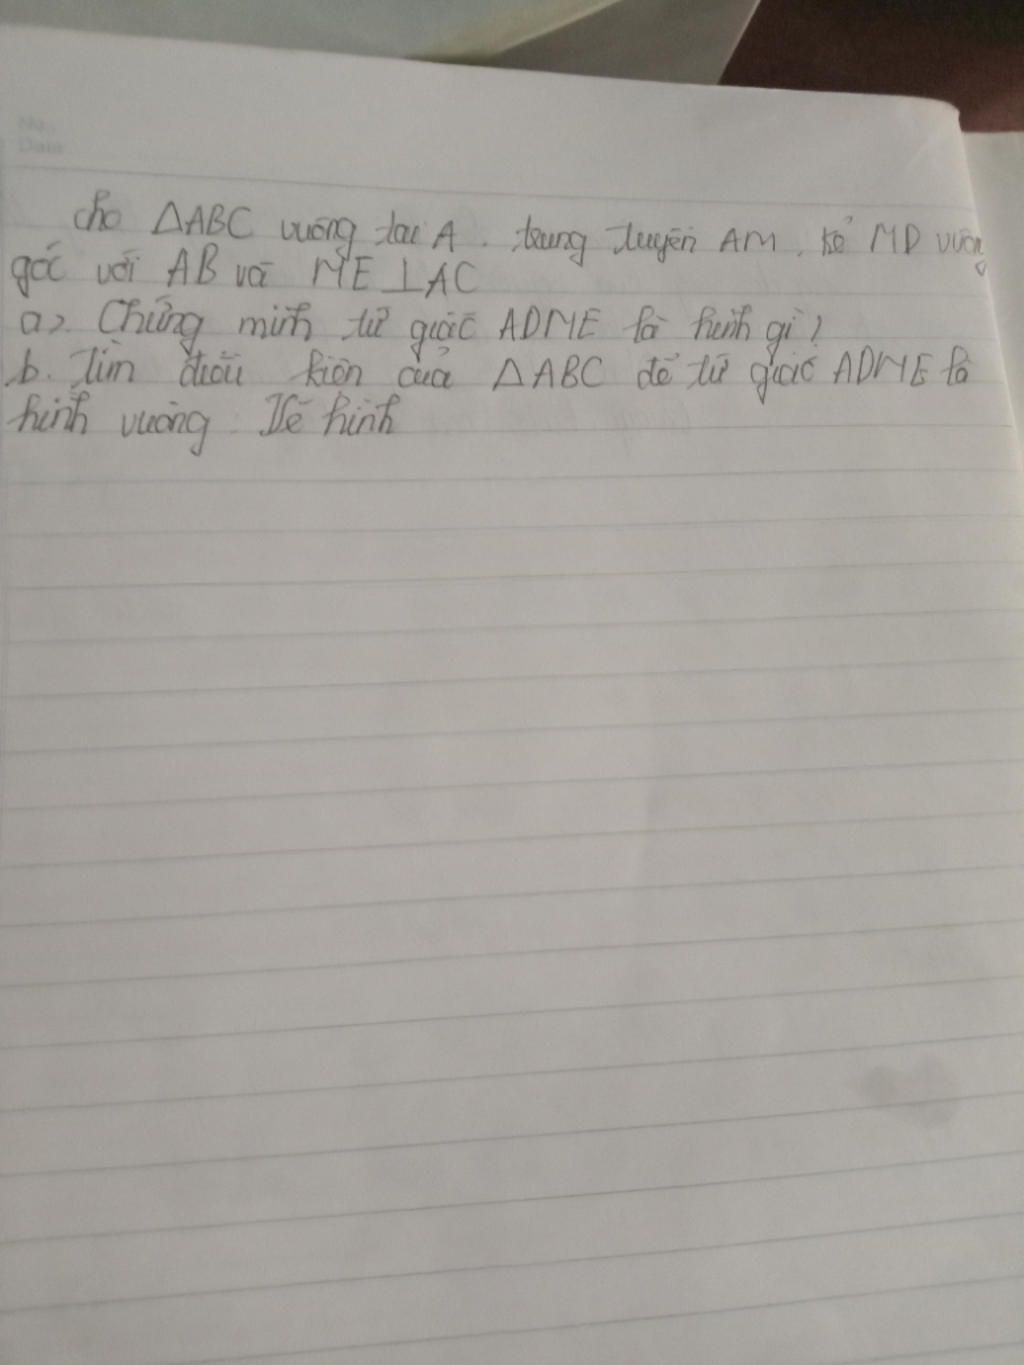 No.
Date
cho ΔABC vuông tại A. trung tuyến AM. kẻ MD vuông
góc với AB và ME ⊥ AC
a>. Chứng minh tứ giác ADME là hình gì?
b. tìm điều kiện của ΔABC để tứ giác ADME là
hình vuông. Vẽ hình